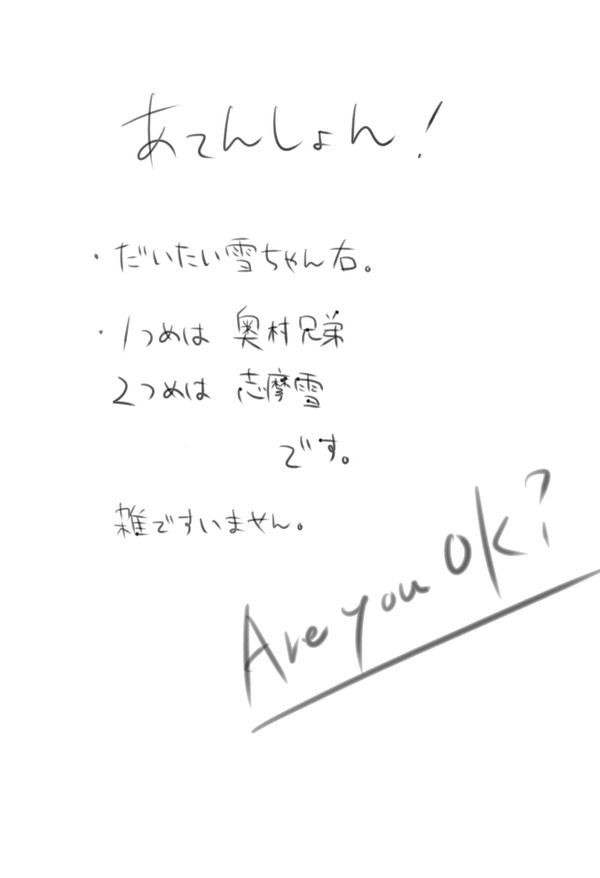 あてんしょん!
・だいたい雪ちゃん右。
・1つめは 奥村兄弟
2つめは 志摩雪
です。
雑ですいません。
Are you OK?